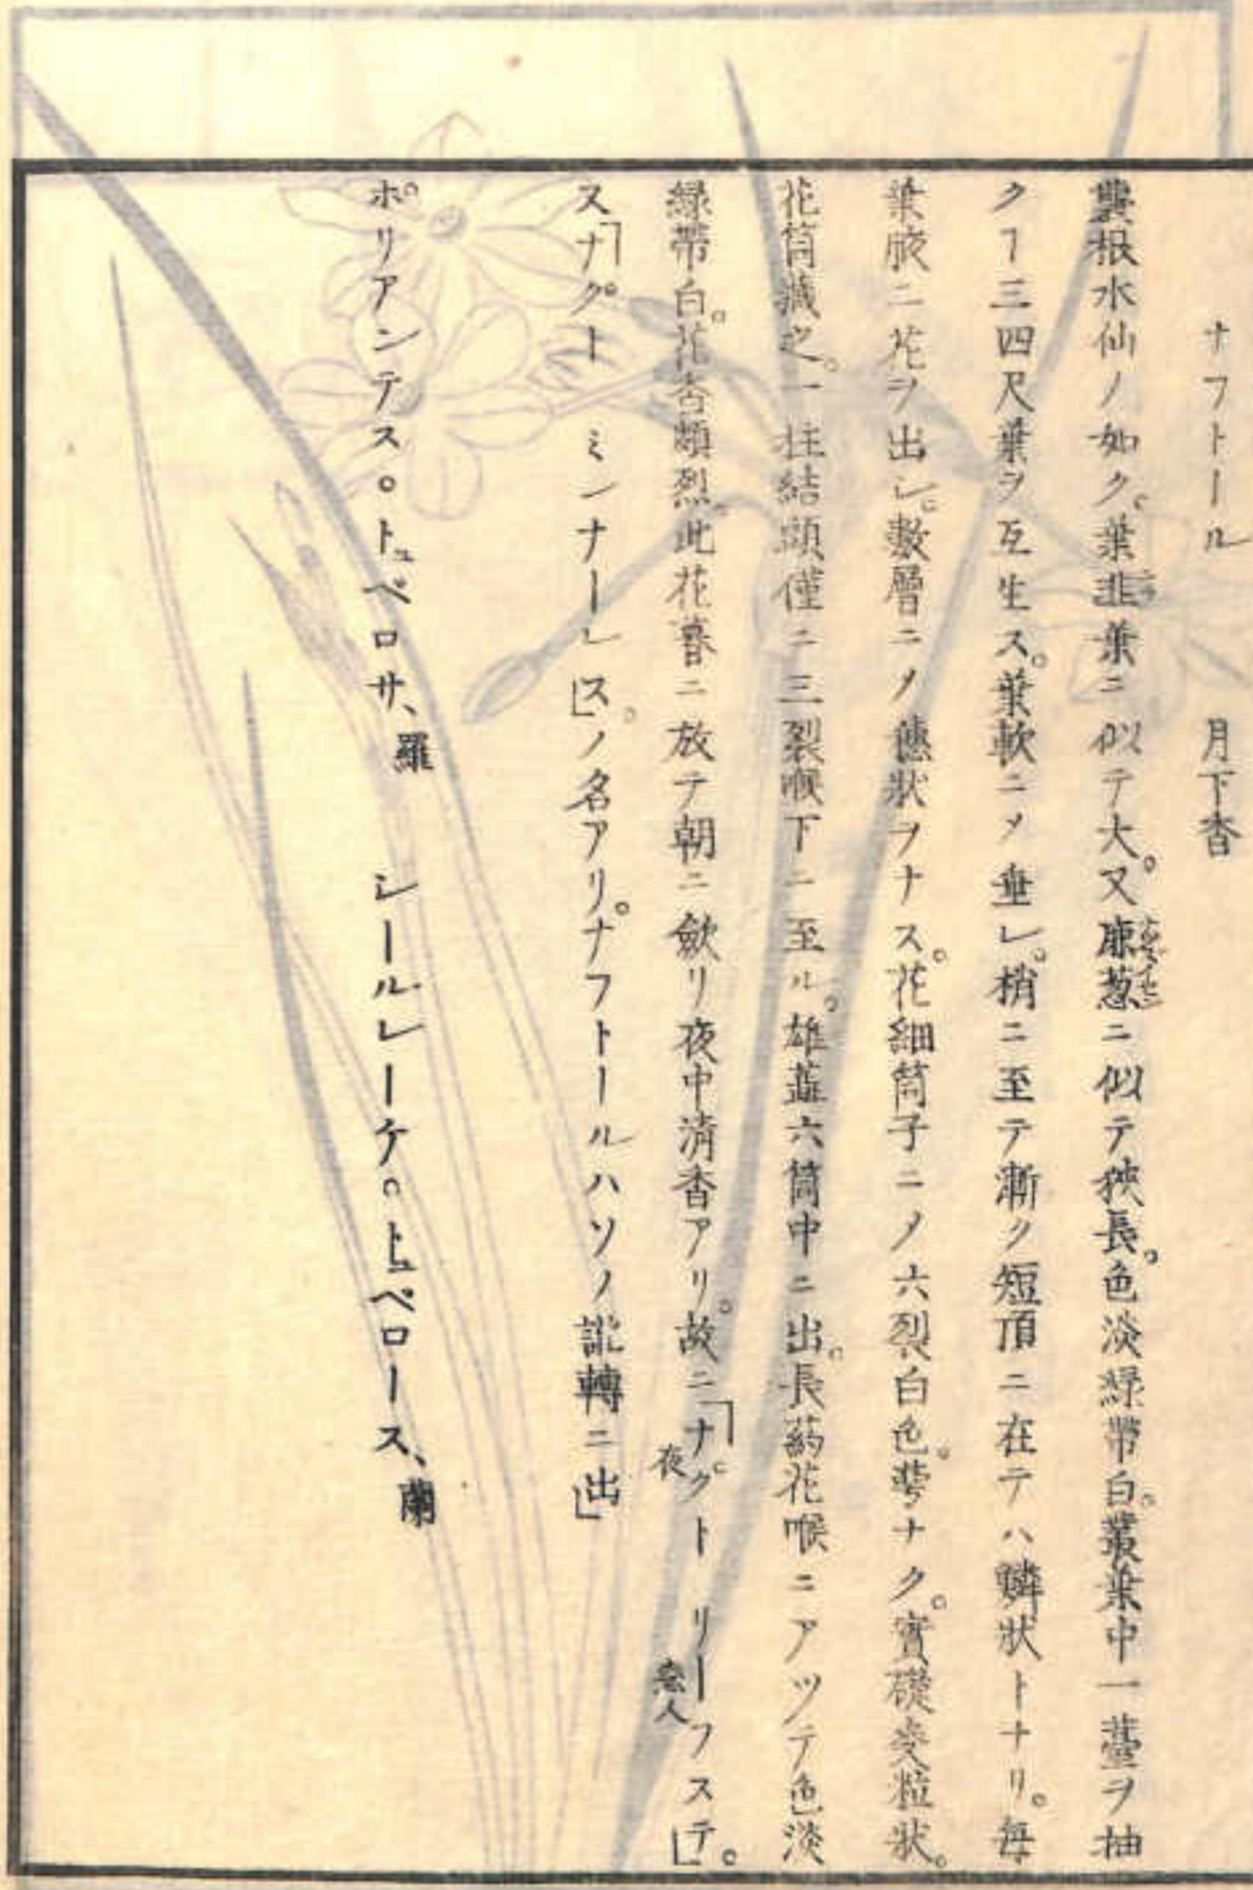 ナフトール 月下香
嚢根水仙ノ如ク。葉韭葉ニ似テ大。又麁葱ニ似テ狹長。色淡緑帶白。叢葉中一薹ヲ抽
クヿ三四尺葉ヲ互生ス。葉軟ニメ垂レ。梢ニ至テ漸ク短頂ニ在テハ鱗状トナリ。毎
葉腋二花ヲ出シ。數層ニメ穗狀ヲナス。花細筒子ニメ六裂白色。萼ナク。實礎麥粒狀。
花筒藏之。一柱結頭僅ニ三裂喉下ニ至ル。雄蕋六筒中ニ出。長葯花喉ニアツテ色淡
緑帶白。花香頗烈。此花暮ニ放テ朝ニ歛リ夜中清香アリ。故ニ「ナクト リーフステ」。
夜 恋人
ス「ナクト ミンナーレス」。ノ名アリ。ナフトールハソノ訛轉ニ出」
ポリアンテス。トュベロサ、羅 シールレーケ。トュベロース、蘭